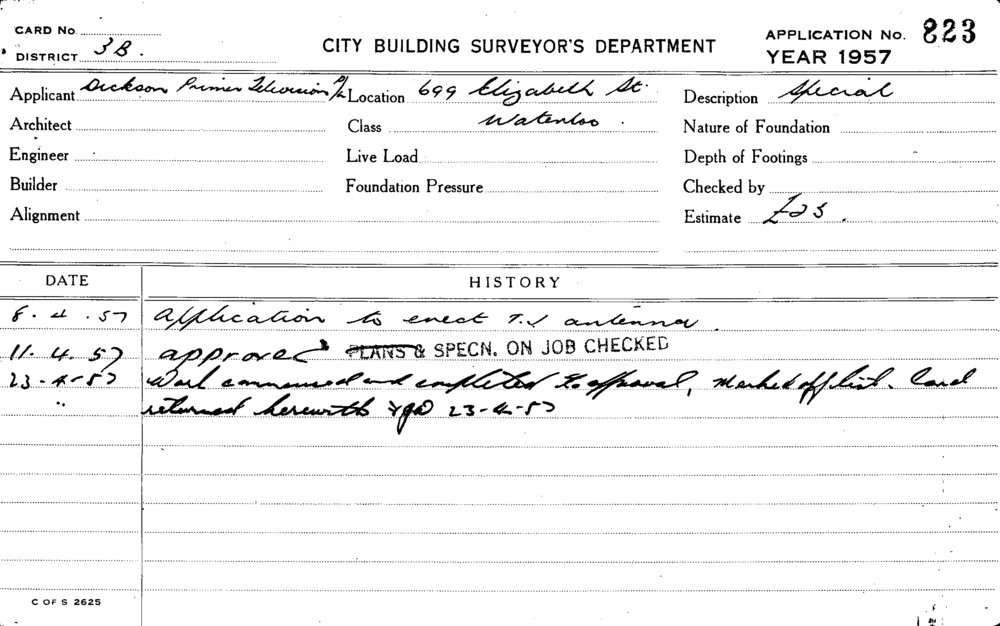 CARD No.
DISTRICT 3B.
CITY BUILDING SURVEYOR'S DEPARTMENT
APPLICATION No. 823
YEAR 1957
Applicant Dickson Primer Television P/L Location 699 Elizabeth St. Description Special
Architect Class Waterloo. Nature of Foundation
Engineer Live Load Depth of Footings
Builder Foundation Pressure Checked by
Alignment Estimate £25.
DATE HISTORY
8.4.57 Application to erect T.V antenna.
11.4.57 approved PLANS & SPECN. ON JOB CHECKED
23-4-57 Work commenced and completed to approval, Marked off list. Card
" returned herewith 23-4-57
C OF S 2625